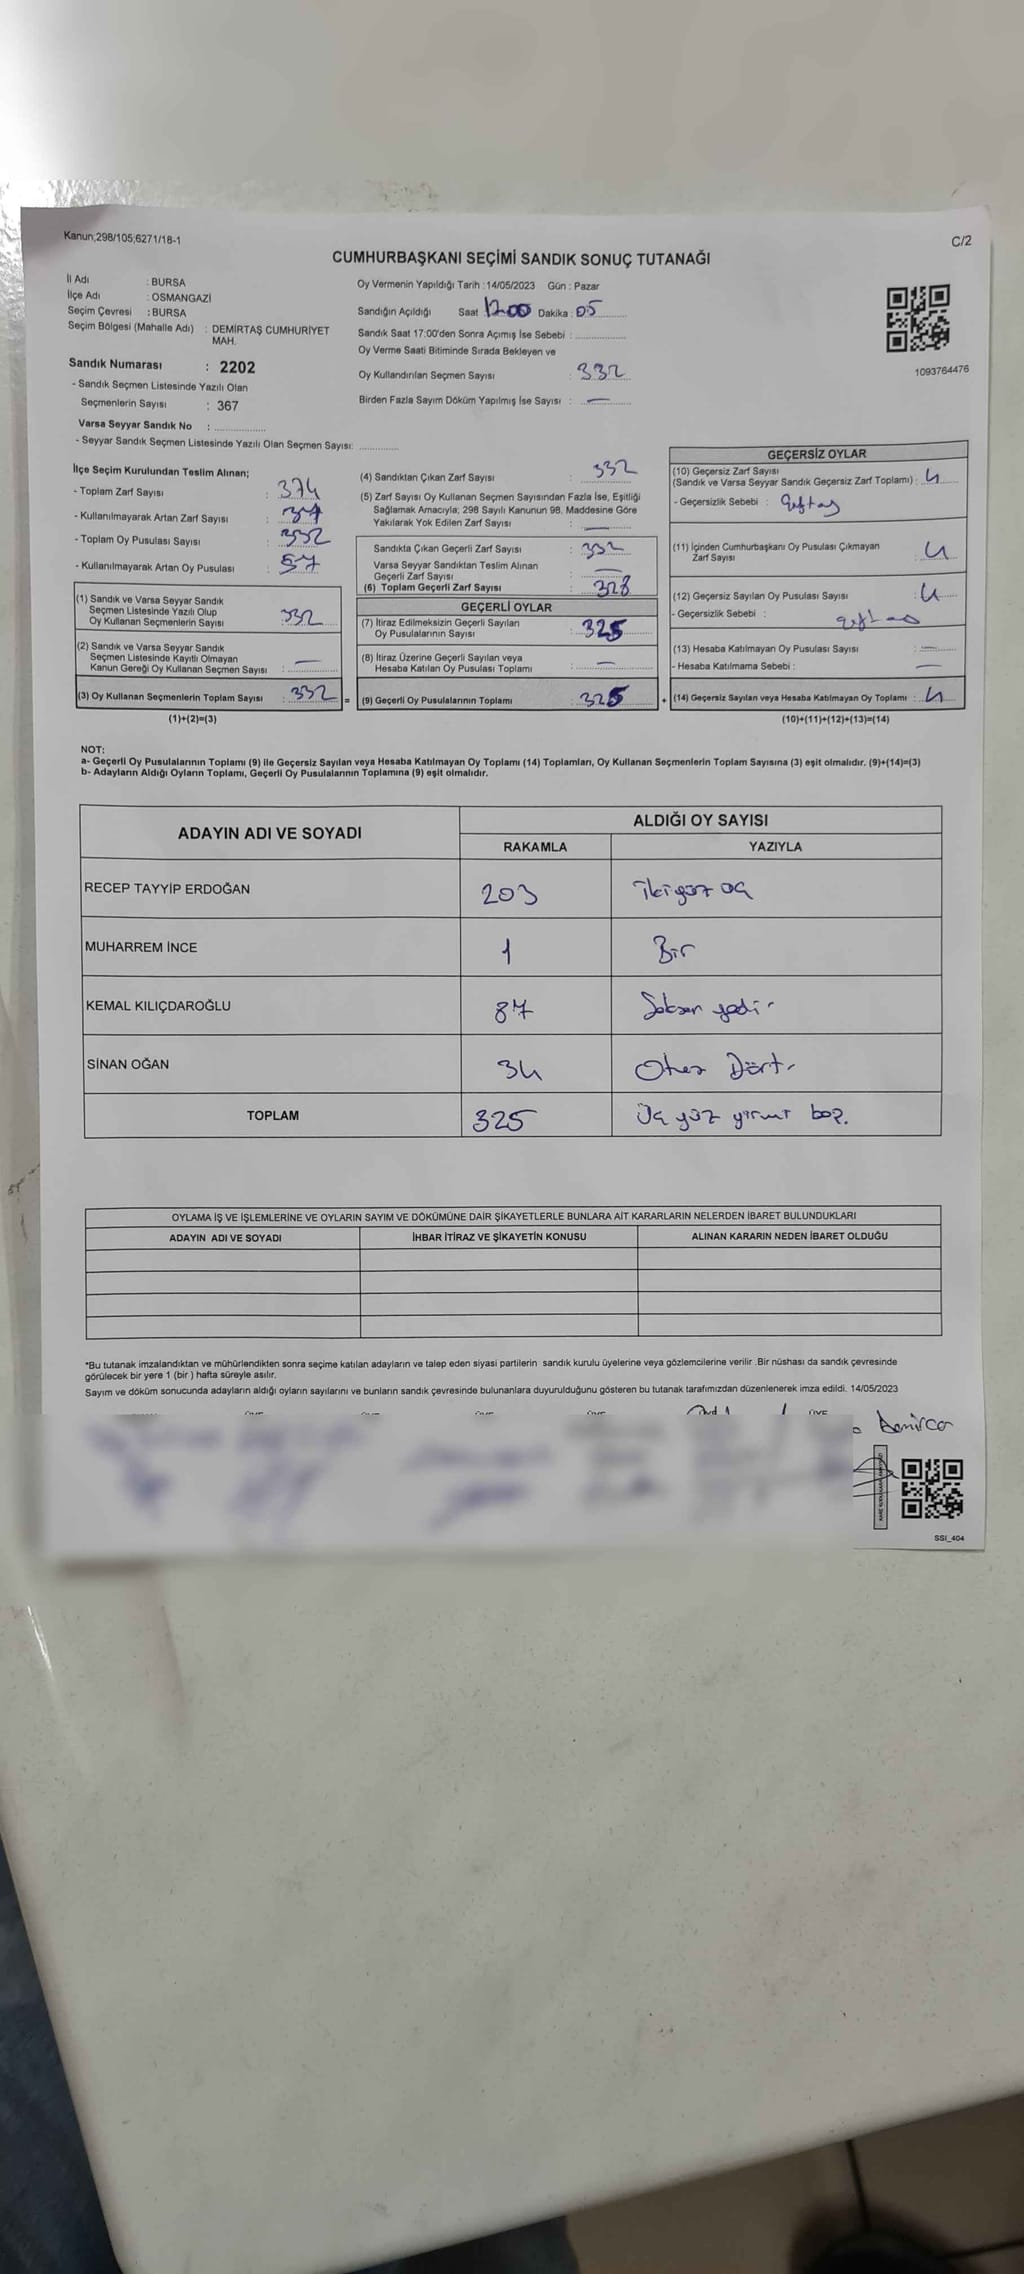 Kanun;298/105;6271/18-1
C/2
CUMHURBAŞKANI SEÇİMİ SANDIK SONUÇ TUTANAĞI
İl Adı : BURSA
İlçe Adı : OSMANGAZİ
Seçim Çevresi : BURSA
Seçim Bölgesi (Mahalle Adı) : DEMİRTAŞ CUMHURİYET
MAH.
Sandık Numarası : 2202
- Sandık Seçmen Listesinde Yazılı Olan
Seçmenlerin Sayısı : 367
Varsa Seyyar Sandık No :
- Seyyar Sandık Seçmen Listesinde Yazılı Olan Seçmen Sayısı:
Oy Vermenin Yapıldığı Tarih : 14/05/2023 Gün : Pazar
Sandığın Açıldığı Saat Dakika : 05
Sandık Saat 17:00'den Sonra Açımış İse Sebebi :
Oy Verme Saati Bitiminde Sırada Bekleyen ve
Oy Kullandırılan Seçmen Sayısı : 332
Birden Fazla Sayım Döküm Yapılmış İse Sayısı : —
1093764476
İlçe Seçim Kurulundan Teslim Alınan;
- Toplam Zarf Sayısı : 374
- Kullanılmayarak Artan Zarf Sayısı :
- Toplam Oy Pusulası Sayısı :
- Kullanılmayarak Artan Oy Pusulası :
(1) Sandık ve Varsa Seyyar Sandık
Seçmen Listesinde Yazılı Olup
Oy Kullanan Seçmenlerin Sayısı : 332
(2) Sandık ve Varsa Seyyar Sandık
Seçmen Listesinde Kayıtlı Olmayan
Kanun Gereği Oy Kullanan Seçmen Sayısı : —
(3) Oy Kullanan Seçmenlerin Toplam Sayısı : 332 =
(1)+(2)=(3)
(4) Sandıktan Çıkan Zarf Sayısı : 332
(5) Zarf Sayısı Oy Kullanan Seçmen Sayısından Fazla İse, Eşitliği
Sağlamak Amacıyla; 298 Sayılı Kanunun 98. Maddesine Göre
Yakılarak Yok Edilen Zarf Sayısı : —
Sandıkta Çıkan Geçerli Zarf Sayısı : 332
Varsa Seyyar Sandıktan Teslim Alınan
Geçerli Zarf Sayısı : —
(6) Toplam Geçerli Zarf Sayısı : 328
GEÇERLİ OYLAR
(7) İtiraz Edilmeksizin Geçerli Sayılan
Oy Pusulalarının Sayısı : 325
(8) İtiraz Üzerine Geçerli Sayılan veya
Hesaba Katılan Oy Pusulası Toplamı : —
(9) Geçerli Oy Pusulalarının Toplamı : 325 +
GEÇERSİZ OYLAR
(10) Geçersiz Zarf Sayısı
(Sandık ve Varsa Seyyar Sandık Geçersiz Zarf Toplamı) : 4
- Geçersizlik Sebebi :
(11) İçinden Cumhurbaşkanı Oy Pusulası Çıkmayan
Zarf Sayısı : 4
(12) Geçersiz Sayılan Oy Pusulası Sayısı : 4
- Geçersizlik Sebebi :
(13) Hesaba Katılmayan Oy Pusulası Sayısı : —
- Hesaba Katılmama Sebebi : —
(14) Geçersiz Sayılan veya Hesaba Katılmayan Oy Toplamı : 4
(10)+(11)+(12)+(13)=(14)
NOT:
a- Geçerli Oy Pusulalarının Toplamı (9) ile Geçersiz Sayılan veya Hesaba Katılmayan Oy Toplamı (14) Toplamları, Oy Kullanan Seçmenlerin Toplam Sayısına (3) eşit olmalıdır. (9)+(14)=(3)
b- Adayların Aldığı Oyların Toplamı, Geçerli Oy Pusulalarının Toplamına (9) eşit olmalıdır.
ADAYIN ADI VE SOYADI ALDIĞI OY SAYISI
RAKAMLA YAZIYLA
RECEP TAYYİP ERDOĞAN 203 ikiyüz üç
MUHARREM İNCE 1 Bir
KEMAL KILIÇDAROĞLU 87 Seksen yedi
SİNAN OĞAN 34 Otuz Dört
TOPLAM 325 Üç yüz yirmi beş.
OYLAMA İŞ VE İŞLEMLERİNE VE OYLARIN SAYIM VE DÖKÜMÜNE DAİR ŞİKAYETLERLE BUNLARA AİT KARARLARIN NELERDEN İBARET BULUNDUKLARI
ADAYIN ADI VE SOYADI İHBAR İTİRAZ VE ŞİKAYETİN KONUSU ALINAN KARARIN NEDEN İBARET OLDUĞU
*Bu tutanak imzalandıktan ve mühürlendikten sonra seçime katılan adayların ve talep eden siyasi partilerin sandık kurulu üyelerine veya gözlemcilerine verilir .Bir nüshası da sandık çevresinde
görülecek bir yere 1 (bir ) hafta süreyle asılır.
Sayım ve döküm sonucunda adayların aldığı oyların sayılarını ve bunların sandık çevresinde bulunanlara duyurulduğunu gösteren bu tutanak tarafımızdan düzenlenerek imza edildi. 14/05/2023
SSI_404